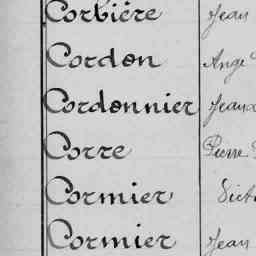 Corbière Jean
Cordon Ange
Cordonnier Jean
Corre Pierre
Cormier Vict
Cormier Jean